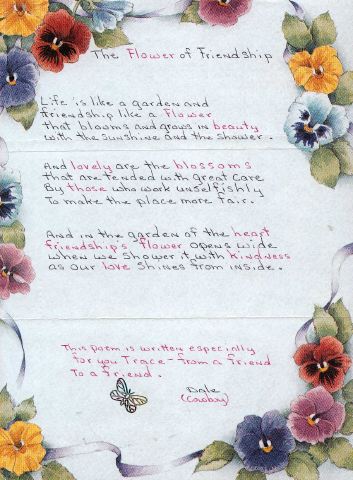 The Flower of Friendship
Life is like a garden and
friendship like a Flower
That blooms and grows in beauty
with the sunshine and the shower.
And lovely are the blossoms
that are tended with Great Care
By those who work unselfishly
To make the place more fair.
And in the garden of the heart
friendship's flower opens wide
when we shower it with kindness
as our love shines from inside.
This poem is written especially
for you Trace - from a friend
To a friend.
Dale
(Cowboy)